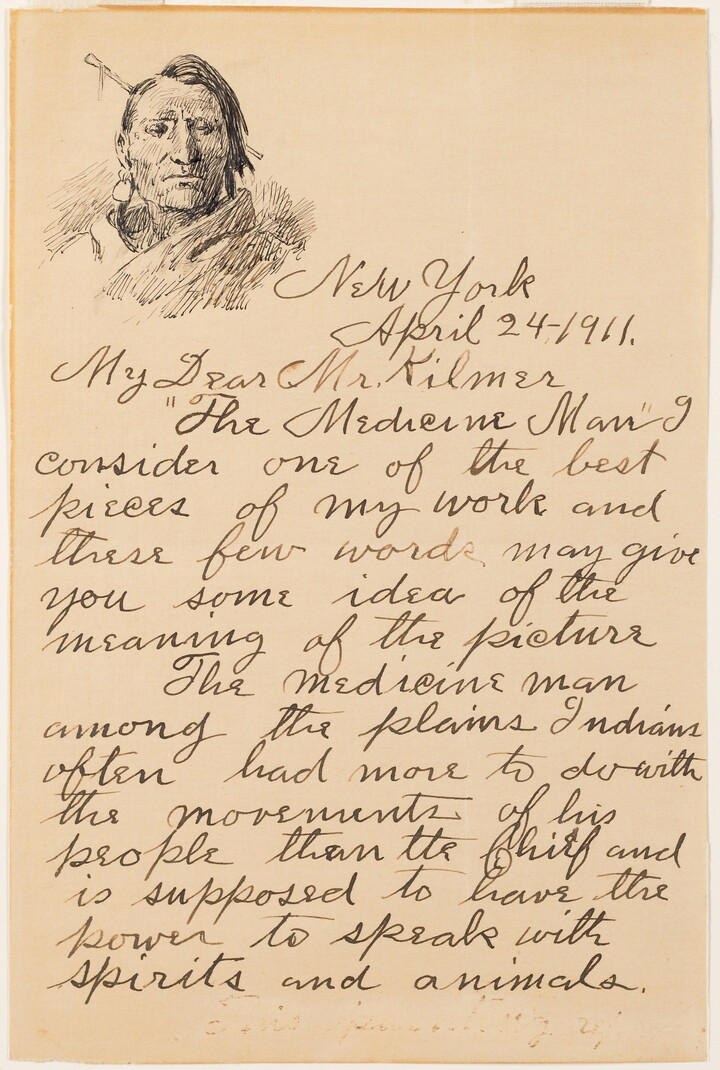 New York
April 24-1911.
My Dear Mr. Kilmer
"The Medicine Man" I
consider one of the best
pieces of my work and
these few words may give
you some idea of the
meaning of the picture
The medicine man
among the plains Indians
often had more to do with
the movements of his
people than the Chief and
is supposed to have the
power to speak with
spirits and animals.